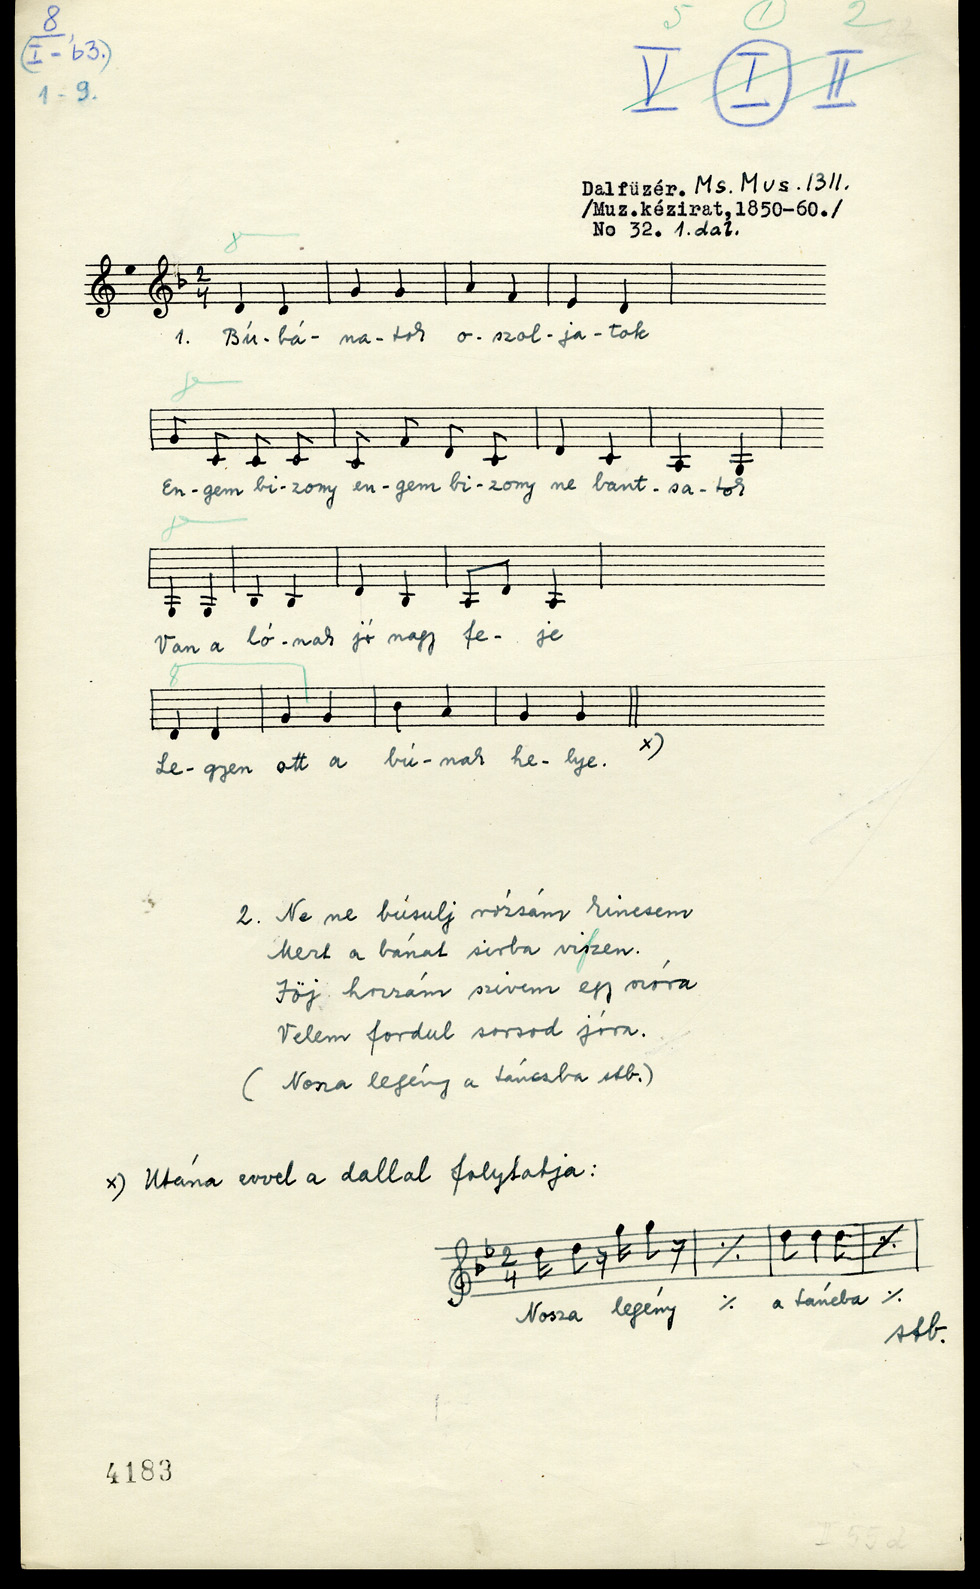 8
(I - 63.)
1 - 9.
5 1 2
V I II
Dalfüzér. Ms. Mus. 1311.
/Muz.kézirat,1850-60./
No 32. 1. dal.
8
2
4
1. Bú-bá-na-tok o-szol-ja-tok
En-gem bi-zony en-gem bi-zony ne bánt-sa-tok
Van a ló-nak jó nagy fe-je
8
Le-gyen ott a bú-nak he-lye. x)
2. Ne ne búsulj rózsám kincsem
Mert a bánat sirba viszen.
Jöj hozzám szivem egy szóra
Velem fordul sorsod jóra.
( Nosza legény a tánczba stb.)
x) Utána evvel a dallal folytatja:
2
4
Nosza legény ٪ a táncba ٪
stb.
4183
II 55d